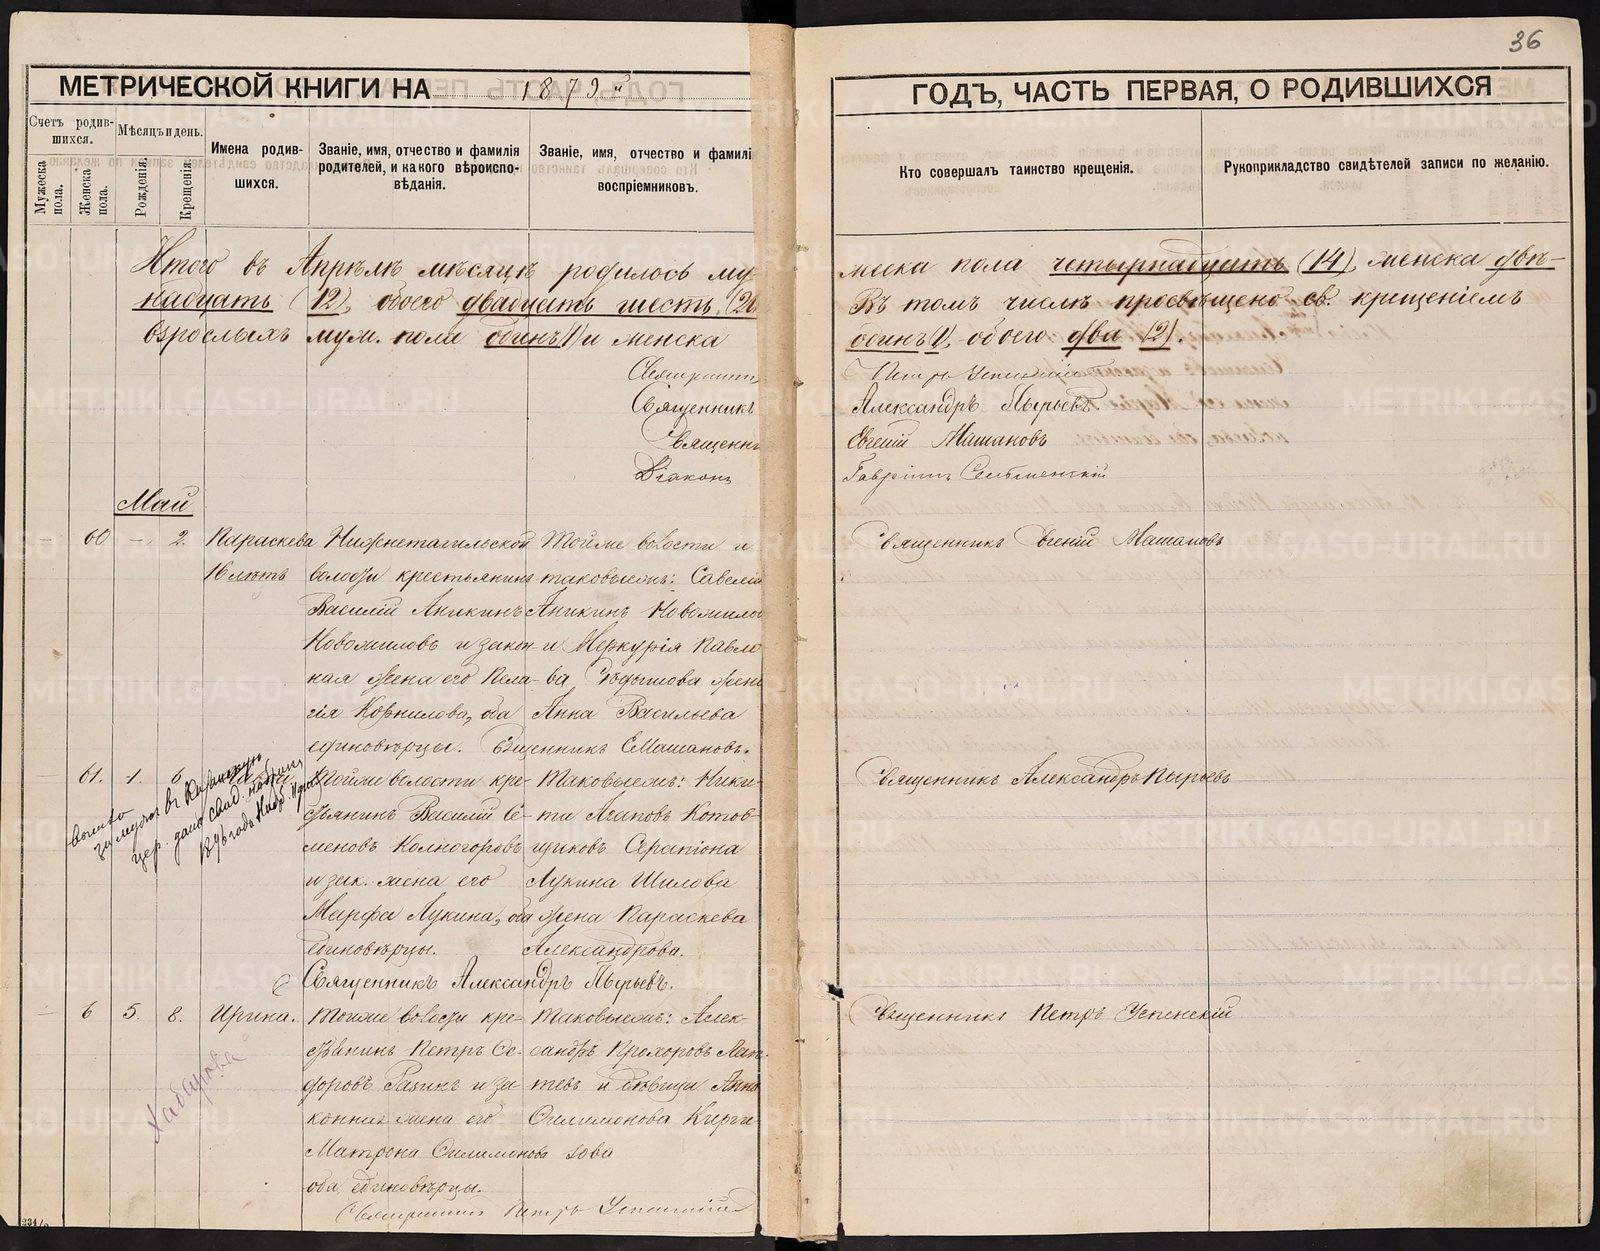 36
МЕТРИЧЕСКОЙ КНИГИ НА 1879й
ГОДЪ, ЧАСТЬ ПЕРВАЯ, О РОДИВШИХСЯ
Счетъ родив-
шихся.
Мужеска пола.
Женска пола.
Мѣсяцъ и день.
Рожденія.
Крещенія.
Имена родив-
шихся.
Званіе, имя, отчество и фамилія
родителей, и какого вѣроиспо-
вѣданія.
Званіе, имя, отчество и фамилі
воспріемниковъ.
Кто совершалъ таинство крещенія.
Рукоприкладство свидѣтелей записи по желанію.
Итого въ Апрѣлѣ мѣсяцѣ родилось му
жеска пола четырнадцать (14), женска двѣ-
надцать (12), обоего двадцать шесть, (26
Въ томъ числѣ просвѣщено св. крещеніемъ
взрослыхъ муж. пола одинъ (1) и женска
одинъ 1), обоего два (2).
Священникъ
Александръ Пырьевъ
Священн
Евгеній Машановъ
Діаконъ
Петръ Успенскій
Май
60 — 2.
Параскева
16 лѣтъ
Нижнетагильской
волости крестьянинъ
Василій Аникинъ
Новожиловъ и закон-
ная жена его Пела-
гія Корнилова, оба
единовѣрцы.
Тойже волости и
таковыежъ: Савелій
Аникинъ Новожило
и Меркурія Павло
ва жен
Анна Васильева
Священникъ Е Машановъ.
Священникъ Евгеній Машановъ
61. 1. 6
замужъ въ
Тойже волости кре-
стьянинъ Василій Се-
меновъ Колногоровъ
и зак. жена его
Марфа Лукина, оба
единовѣрцы.
Таковыежъ: Ники-
та Агаповъ Котов-
щиковъ Серапіона
Лукина Шилова
жена Параскева
Александрова.
Священникъ Александръ Пырьевъ.
Священникъ Александръ Пырьевъ
6 5. 8.
Ирина.
Хабарова
Тойже волости кре-
стьянинъ Петръ Се-
и за-
конная жена его
Матрона Филимонова
оба единовѣрцы.
Таковыежъ: Алек-
сандръ Прохоровъ Лап
тевъ и дѣвица Анна
Филимонова Кирги
зова
Священникъ Петръ Успенскій
Священникъ Петръ Успенскій
METRIKI.GASO-URAL.RU